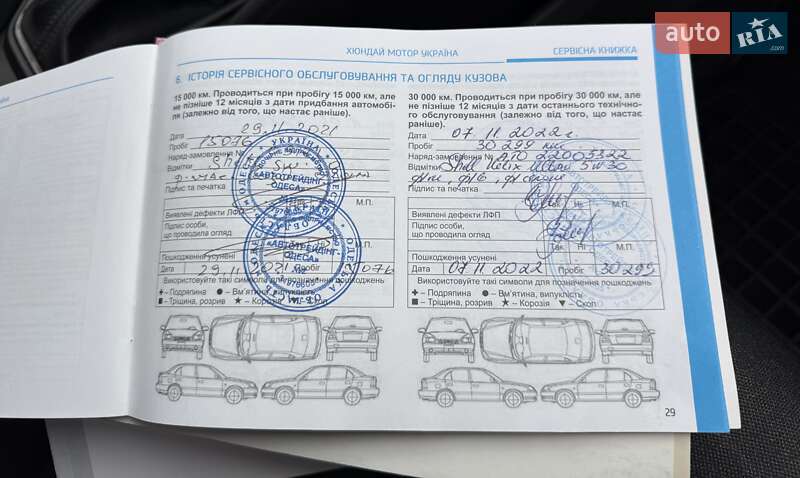 auto RIA.com
ХЮНДАЙ МОТОР УКРАЇНА
СЕРВІСНА КНИЖКА
6. ІСТОРІЯ СЕРВІСНОГО ОБСЛУГОВУВАННЯ ТА ОГЛЯДУ КУЗОВА
15 000 км. Проводиться при пробігу 15 000 км, але
не пізніше 12 місяців з дати придбання автомобі-
ля (залежно від того, що настає раніше).
Дата 29.11 2021
Пробіг 15076
Наряд-замовлення №
Відмітки Shell 5W
Підпис та печатка
М.П.
Виявлені дефекти ЛФП
Підпис особи,
що проводила огляд
Пошкодження усунені
Дата 29.11 2021 Пробіг 15076
Використовуйте такі символи для позначення пошкоджень
Подряпина Вм'ятина, випуклість
Тріщина, розрив Корозія
УКРАЇНА
ОДЕСА
«АВТОТРЕЙДІНГ-
ОДЕСА»
УКРАЇНА
ОДЕСЬКА
«АВТОТРЕЙДІНГ-
ОДЕСА»
30 000 км. Проводиться при пробігу 30 000 км, але
не пізніше 12 місяців з дати останнього технічно-
го обслуговування (залежно від того, що настає
раніше).
Дата 07.11 2022г.
Пробіг 30 299 км.
Наряд-замовлення № АТО 22005322
Відмітки Shell Helix Ultra 5W30
Підпис та печатка
Так Ні М.П.
Виявлені дефекти ЛФП
Підпис особи,
що проводила огляд
Так Ні М.П.
Пошкодження усунені
Дата 07.11 2022 Пробіг 30 299
Використовуйте такі символи для позначення пошкоджень
Подряпина Вм'ятина, випуклість
Тріщина, розрив Корозія Скол
29